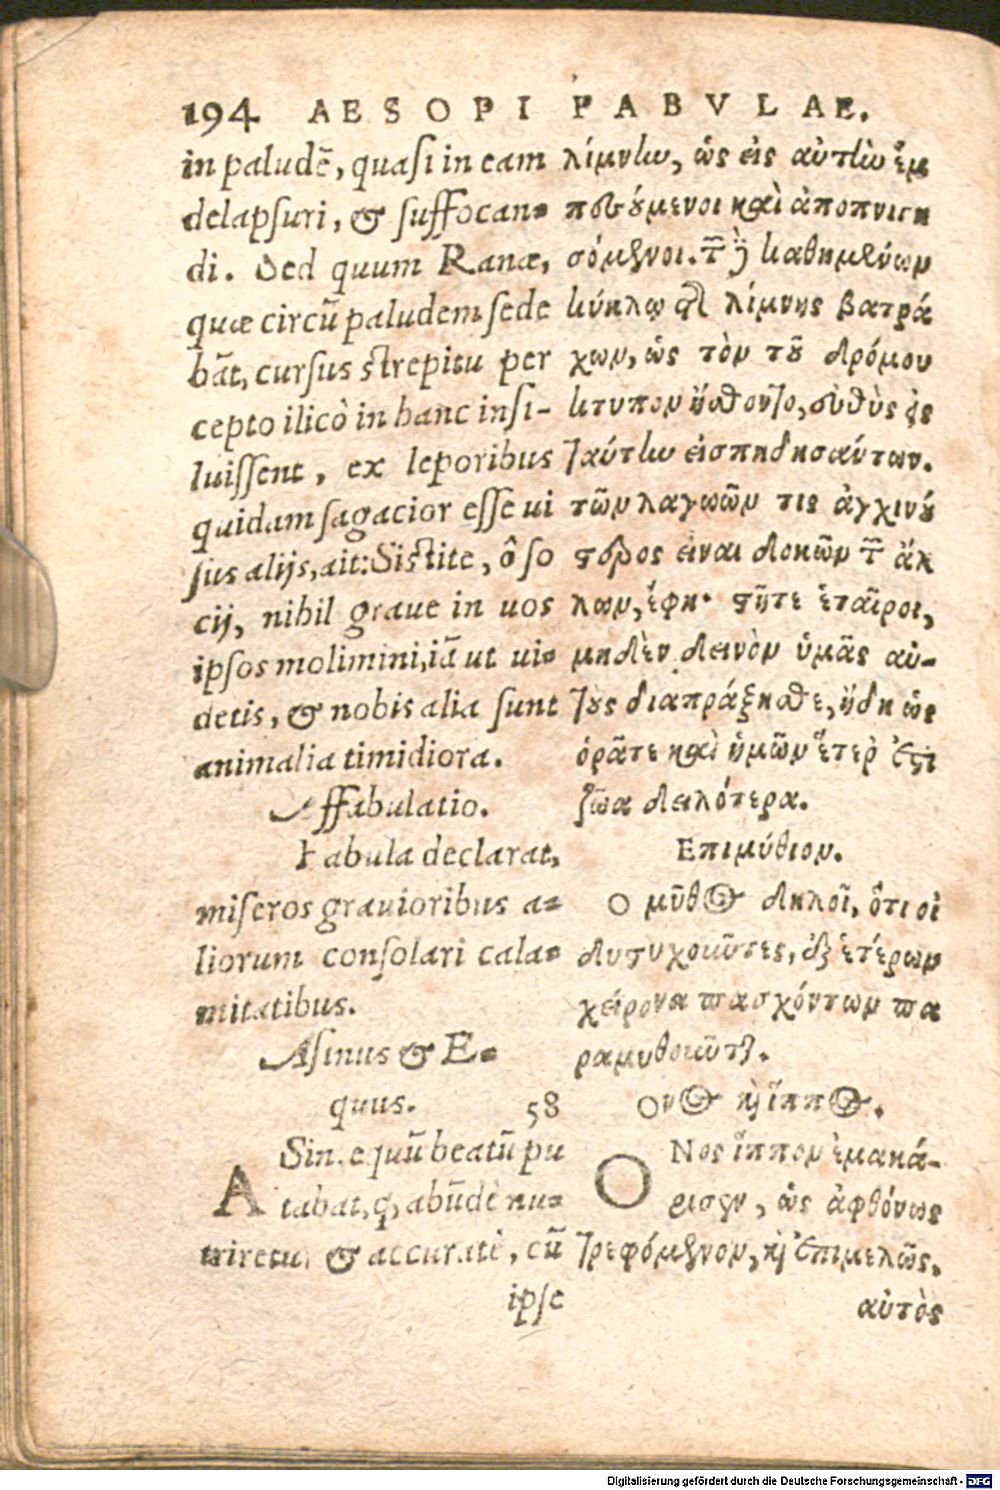 194 AESOPI FABVLAE.
in paludē, quasi in eam
delapsuri, & suffocan-
di. Sed quum Ranæ,
quæ circũ paludem sede
bāt, cursus strepitu per
cepto ilicò in hanc insi-
luissent, ex leporibus
quidam sagacior esse ui
sus alijs, ait: Sistite, ô so
cij, nihil graue in uos
ipsos molimini, iā ut ui-
detis, & nobis alia sunt
animalia timidiora.
Affabulatio.
Fabula declarat,
miseros grauioribus a-
liorum consolari cala-
mitatibus.
Asinus & E-
quus. 58
Asin. equũ beatũ pu
tabat, q, abũde nu-
triretur & accuratè, cũ
ipse
λίμνην, ὡς εἰς αὐτὴν ἐμ
πεσούμενοι καὶ ἀποπνιγη
σόμενοι. τῶν δὲ καθημένων
κύκλῳ τῆς λίμνης βατρά
χων, ὡς τὸν τοῦ δρόμου
κτύπον ᾔσθοντο, εὐθὺς εἰς
ταύτην εἰσπηδησάντων.
τῶν λαγωῶν τις ἀγχινού
στερος εἶναι δοκῶν τῶν ἄλ
λων, ἔφη· στῆτε ἑταῖροι,
μηδὲν δεινὸν ὑμᾶς αὐ-
τοὺς διαπράξησθε, ἤδη ὡς
ὁρᾶτε καὶ ἡμῶν ἕτερ' ἐστι
ζῶα δειλότερα.
Επιμύθιον.
Ο μῦθος δηλοῖ, ὅτι οἱ
δυστυχοῦντες, ἐξ ἑτέρων
χείρονα πασχόντων πα
ραμυθοῦνται.
Ονος καὶ ἵππος.
ΟΝος ἵππον ἐμακά-
ριζεν, ὡς ἀφθόνως
τρεφόμενον, καὶ ἐπιμελῶς,
αὐτὸς
Digitalisierung gefördert durch die Deutsche Forschungsgemeinschaft - DFG